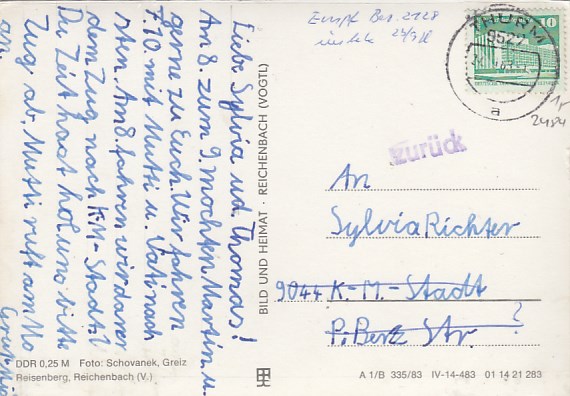 Liebe Sylvia u.d. Thomas!
Am 8. zum 9. möchten Martin u.
gerne zu Euch. Wir fahren
7.10 mit Mutti u. Vati nach
rsten. Am 8. fahren wir da
dem Zug nach K.-M.-Stadt. W
Du Zeit hast hol uns bitte
Zug ab, Mutti ruft am Mo
an.
DDR 0,25 M Foto: Schovanek, Greiz
Reisenberg, Reichenbach (V.)
BILD UND HEIMAT · REICHENBACH (VOGTL)
Empf. Bez. 2128
THURM
9522
a
10
2484
Zurück
An
Sylvia Richter
9044 K.-M.-Stadt
Str. ?
A 1/B 335/83 IV-14-483 01 14 21 283